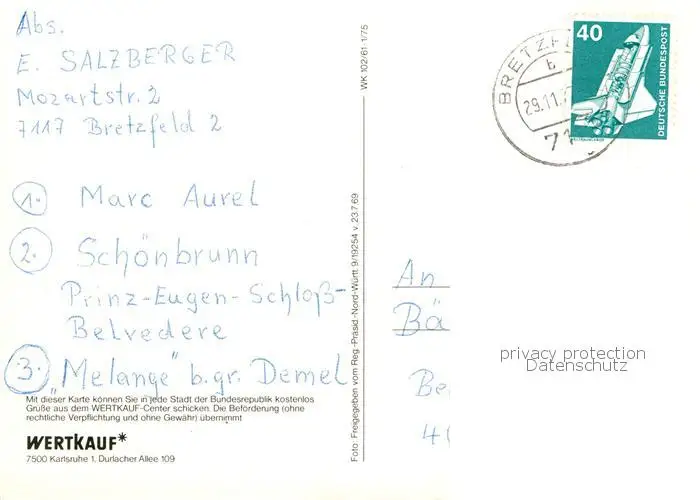 Abs.
E. SALZBERGER
Mozartstr. 2
7117 Bretzfeld 2
1. Marc Aurel
2. Schönbrunn
Prinz-Eugen-Schloß-
Belvedere
3. "Melange" b. gr. Demel
Mit dieser Karte können Sie in jede Stadt der Bundesrepublik kostenlos
Grüße aus dem WERTKAUF-Center schicken. Die Beförderung (ohne
rechtliche Verpflichtung und ohne Gewähr) übernimmt
WERTKAUF*
7500 Karlsruhe 1. Durlacher Allee 109
WK 102/61-1/75
Foto: Freigegeben vom Reg.-Präsid.-Nord-Württ 9/19254 v. 23.7.69
BRETZF
b
29.11.
71
40
DEUTSCHE BUNDESPOST
An
Bä
Be
privacy protection
Datenschutz